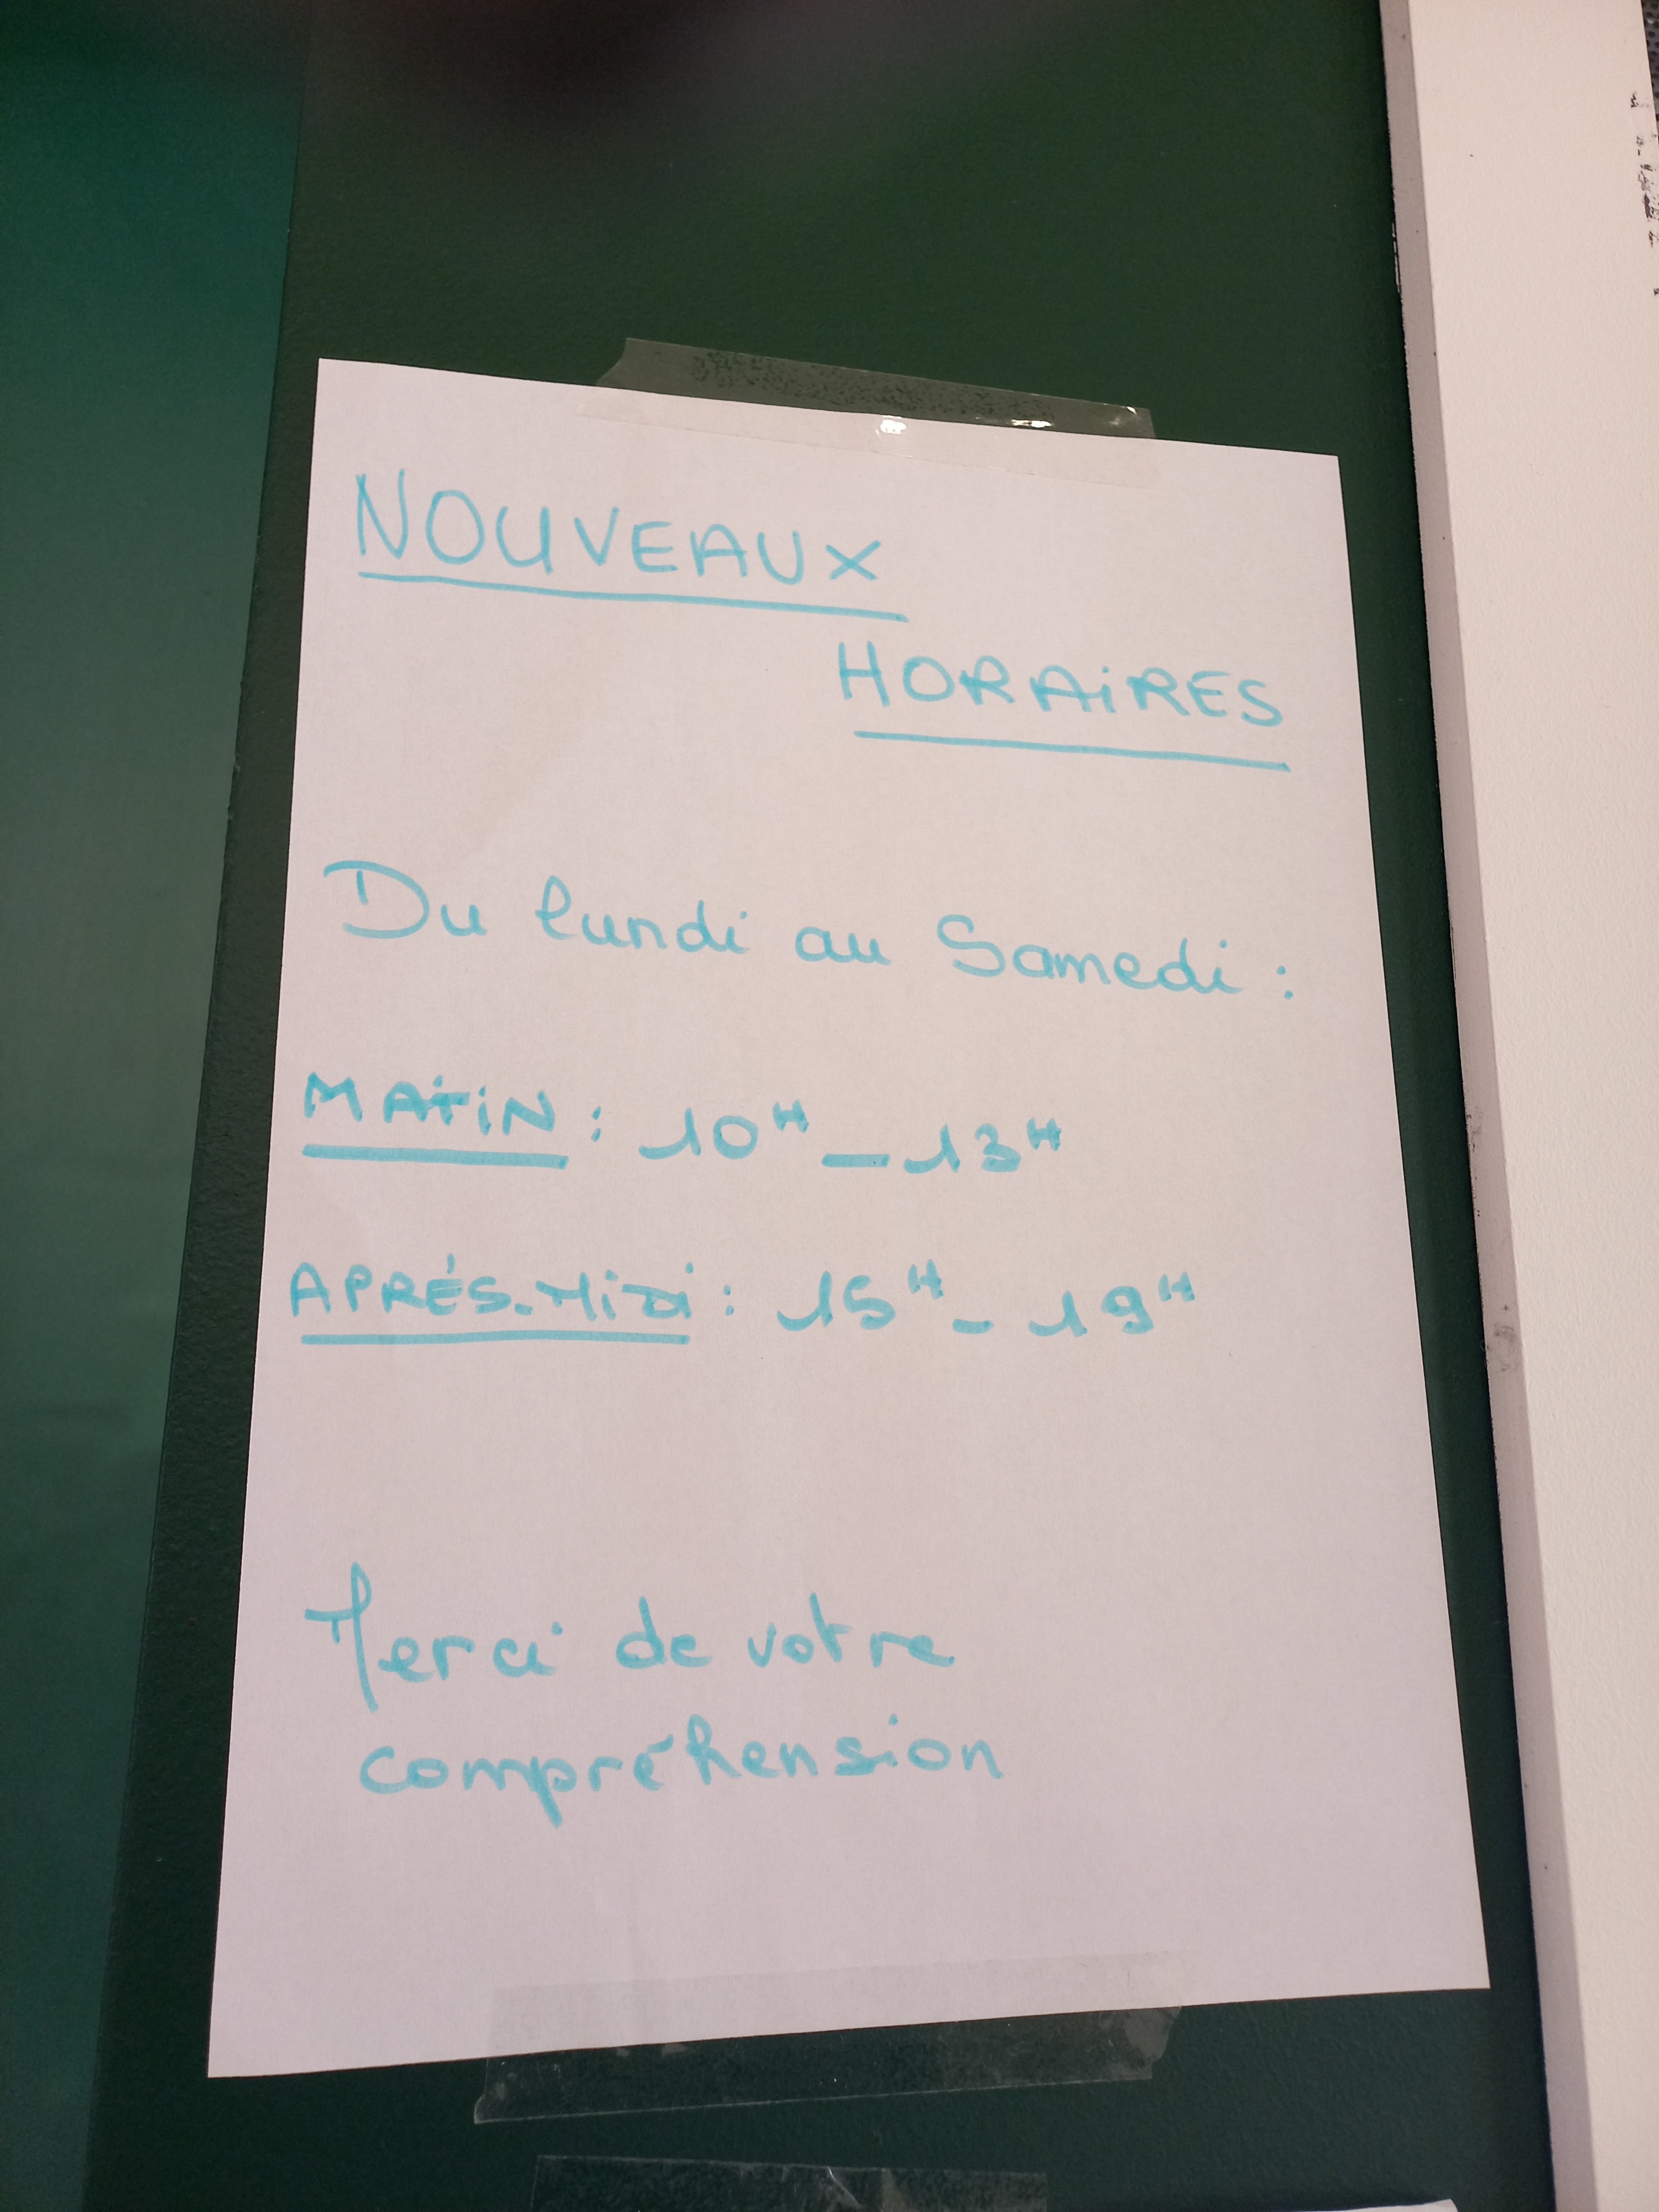 NOUVEAUX
HORAiRES
Du lundi au Samedi :
MATiN : 10H - 13H
APRÉS-MiDi : 15H - 19H
Merci de votre
compréhension